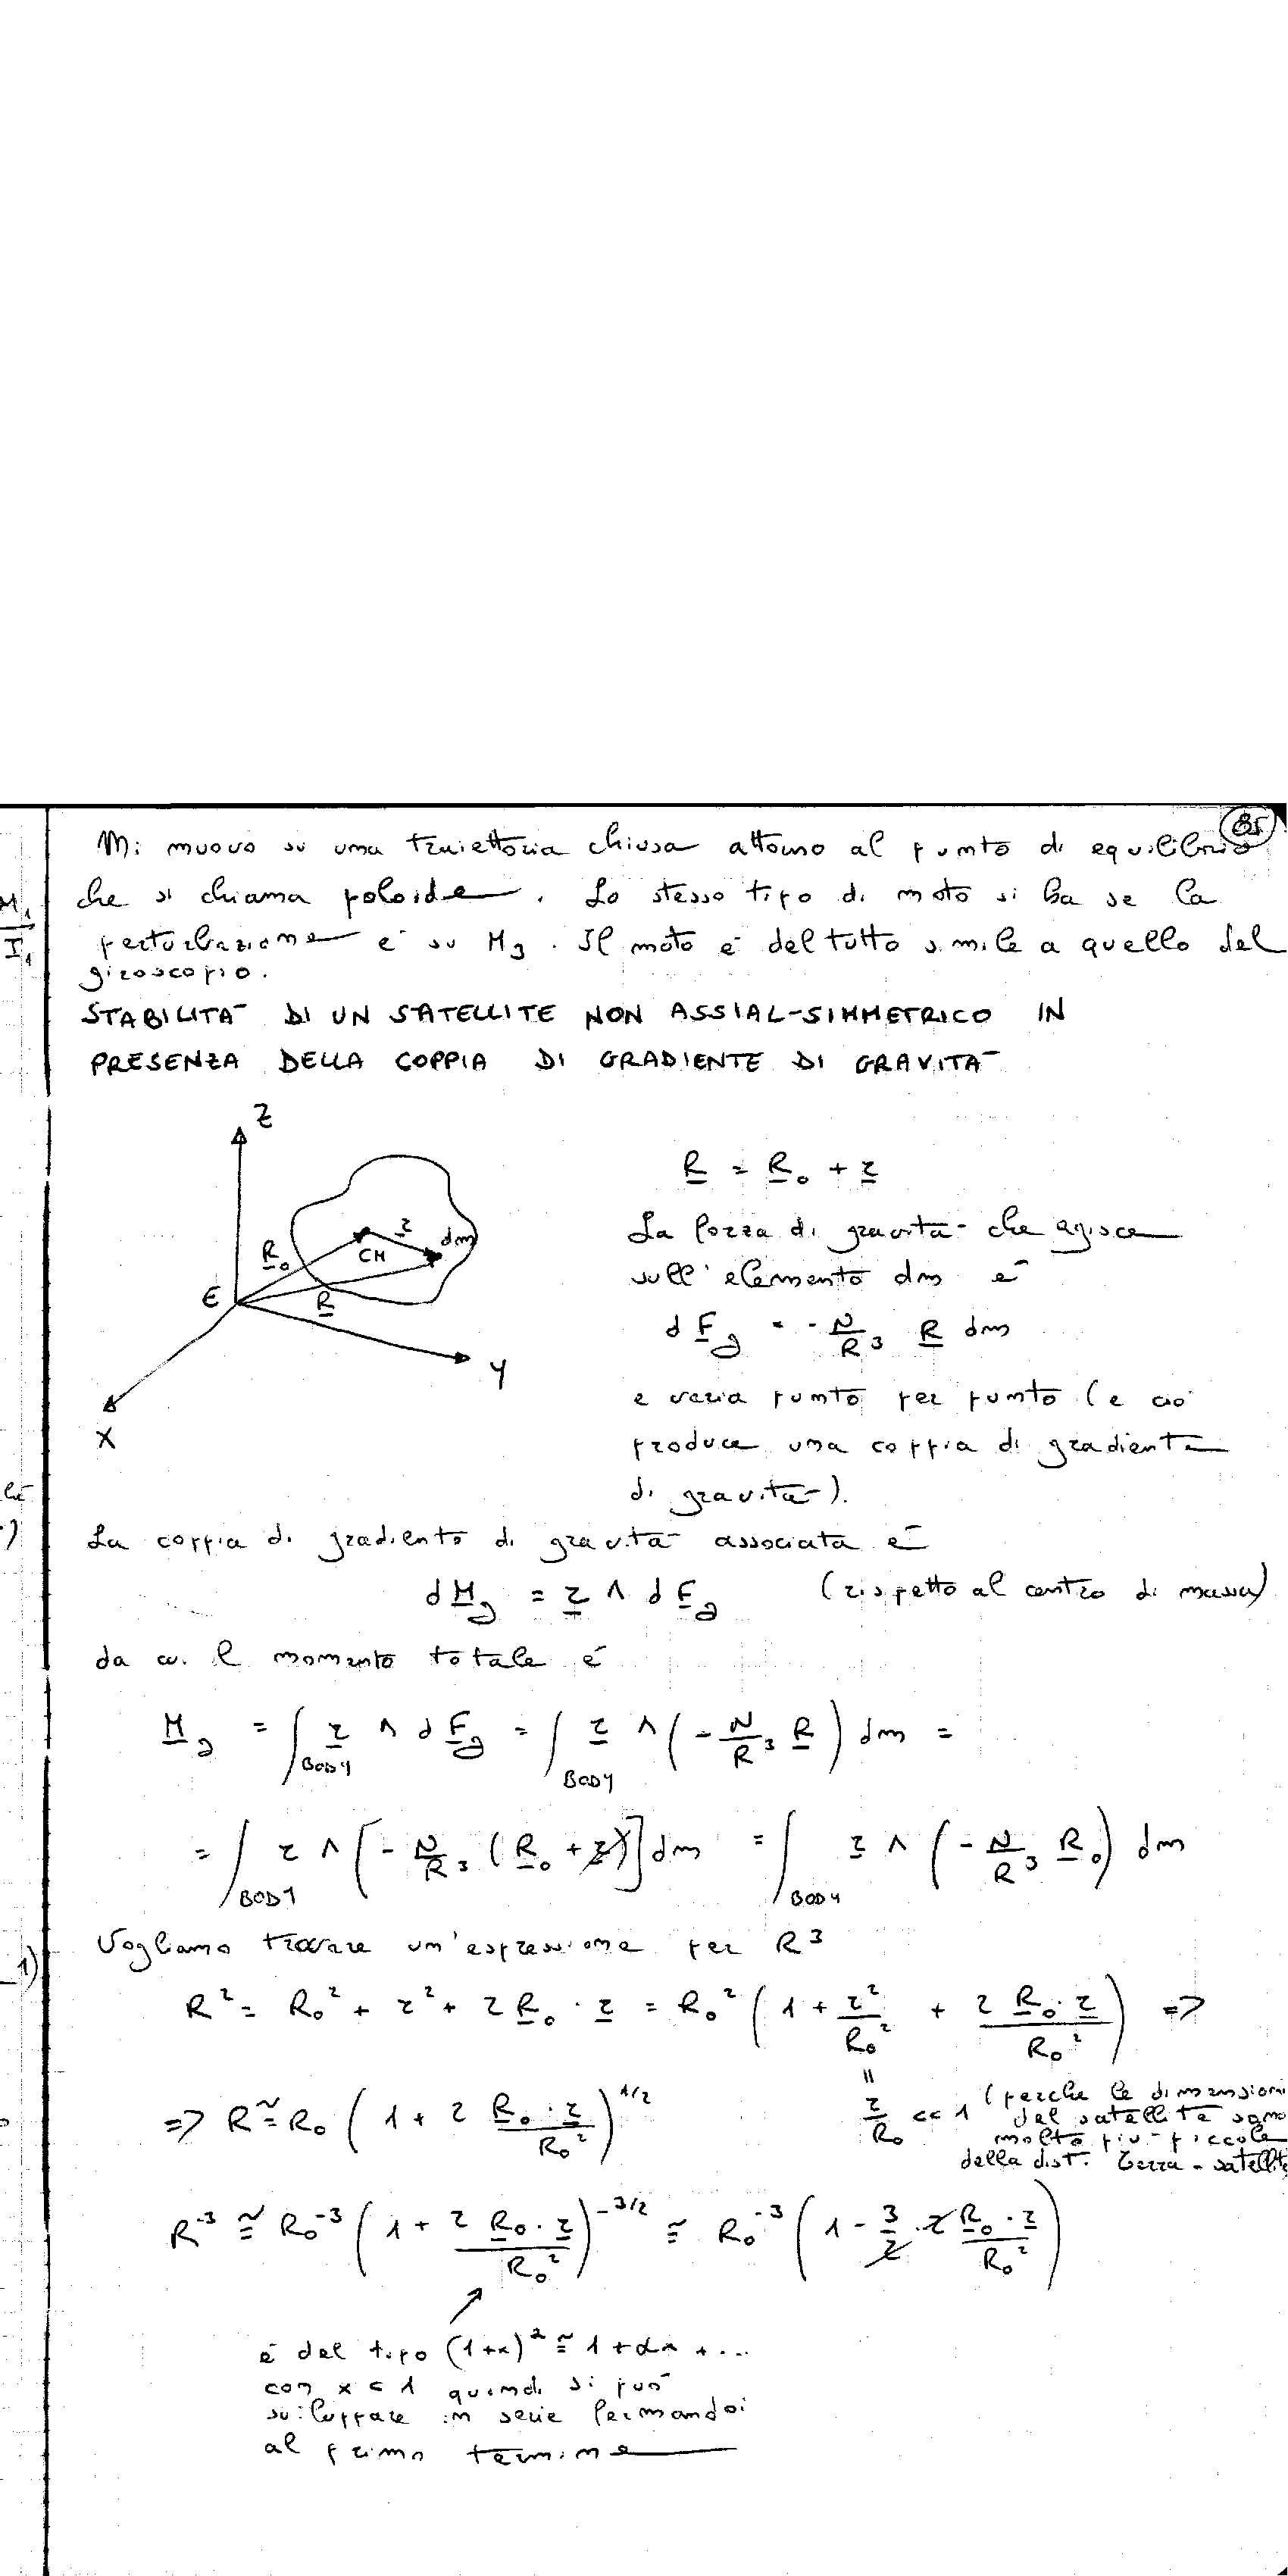 85
Mi muovo su una traiettoria chiusa attorno al punto di equilibrio
che si chiama poloide. Lo stesso tipo di moto si ha se la
perturbazione è su M3. Il moto è del tutto simile a quello del
giroscopio.
STABILITÀ DI UN SATELLITE NON ASSIAL-SIMMETRICO IN
PRESENZA DELLA COPPIA DI GRADIENTE DI GRAVITÀ
Z
R = R₀ + r
La forza di gravità che agisce
sull'elemento dm è
r
dm
R₀
CM
E
R
dF_g = -μ/R³ R dm
Y
X
e varia punto per punto (e ciò
produce una coppia di gradiente
di gravità).
La coppia di gradiente di gravità associata è
dM_g = r ∧ dF_g (rispetto al centro di massa)
da cui il momento totale è
M_g = ∫_BODY r ∧ dF_g = ∫_BODY r ∧ (-μ/R³ R) dm =
= ∫_BODY r ∧ [-μ/R³ (R₀ + r)] dm = ∫_BODY r ∧ (-μ/R³ R₀) dm
Vogliamo trovare un'espressione per R³
R² = R₀² + r² + 2 R₀ · r = R₀² (1 + r²/R₀² + 2 R₀ · r/R₀²) =>
=> R ≅ R₀ (1 + 2 R₀ · r/R₀²)^1/2
r/R₀ << 1 (perché le dimensioni
del satellite sono
molto più piccole
della dist. Terra-satellite
R⁻³ ≅ R₀⁻³ (1 + 2 R₀ · r/R₀²)^-3/2 ≅ R₀⁻³ (1 - 3/2 · 2 R₀ · r/R₀²)
è del tipo (1+x)^α ≅ 1 + αx + ...
con x < 1 quindi si può
sviluppare in serie fermandoci
al primo termine